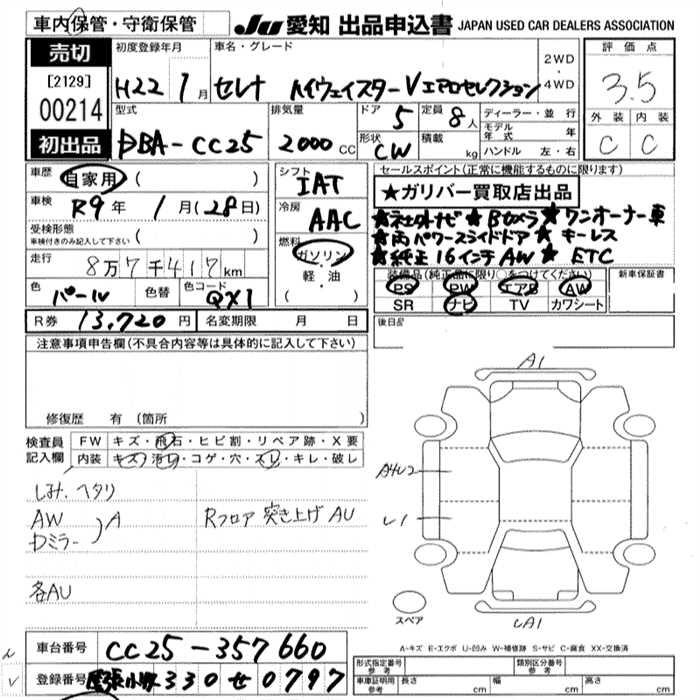 車内保管・守衛保管
JU 愛知 出品申込書 JAPAN USED CAR DEALERS ASSOCIATION
売切
[2129]
00214
初出品
初度登録年月
H22 1月
車名・グレード
セレナ ハイウェイスターV エアロセレクション
2WD
・
4WD
評価点
3.5
外装 内装
C C
型式
DBA-CC25
排気量
2000 CC
ドア
5
定員
8人
形状
CW
積載
kg
ディーラー・並行
モデル年式 年
ハンドル 左・右
車歴 自家用 ( )
車検 R9年 1月(28日)
受検形態
車検付きのみ記入して下さい ( )
走行 8万7千417km
色 パール 色替 色コード QX1
シフト
IAT
冷房
AAC
燃料
ガソリン
・
軽・油
セールスポイント(正常に機能するものに限ります)
★ガリバー買取店出品
★社外ナビ★Bカメラ★ワンオーナー車
★両パワースライドドア★キーレス
★純正16インチAW★ETC
装備品(純正品に限り)○をつけてください
PS PW エアB AW
SR ナビ TV カワシート
新車保証書
後日品
R券 13,720円 名変期限 月 日
注意事項申告欄(不具合内容等は具体的に記入して下さい)
修復歴 有(箇所 )
検査員記入欄
FW キズ・飛石・ヒビ割・リペア跡・X要
内装 キズ・汚レ・コゲ・穴・スレ・キレ・破レ
しみ.ヘタリ
AW
Dミラー
A
Rフロア 突き上げ AU
各AU
A1
A4U2
U1
スペア
A-キズ E-エクボ U-凹み W-補修跡 S-サビ C-腐食 XX-交換済
車台番号 CC25-357660
登録番号 尾張小牧 330 せ 0797
形式指定番号
参考
類別区分番号
参考
車庫証明用
参考
長さ cm 幅 cm 高さ cm